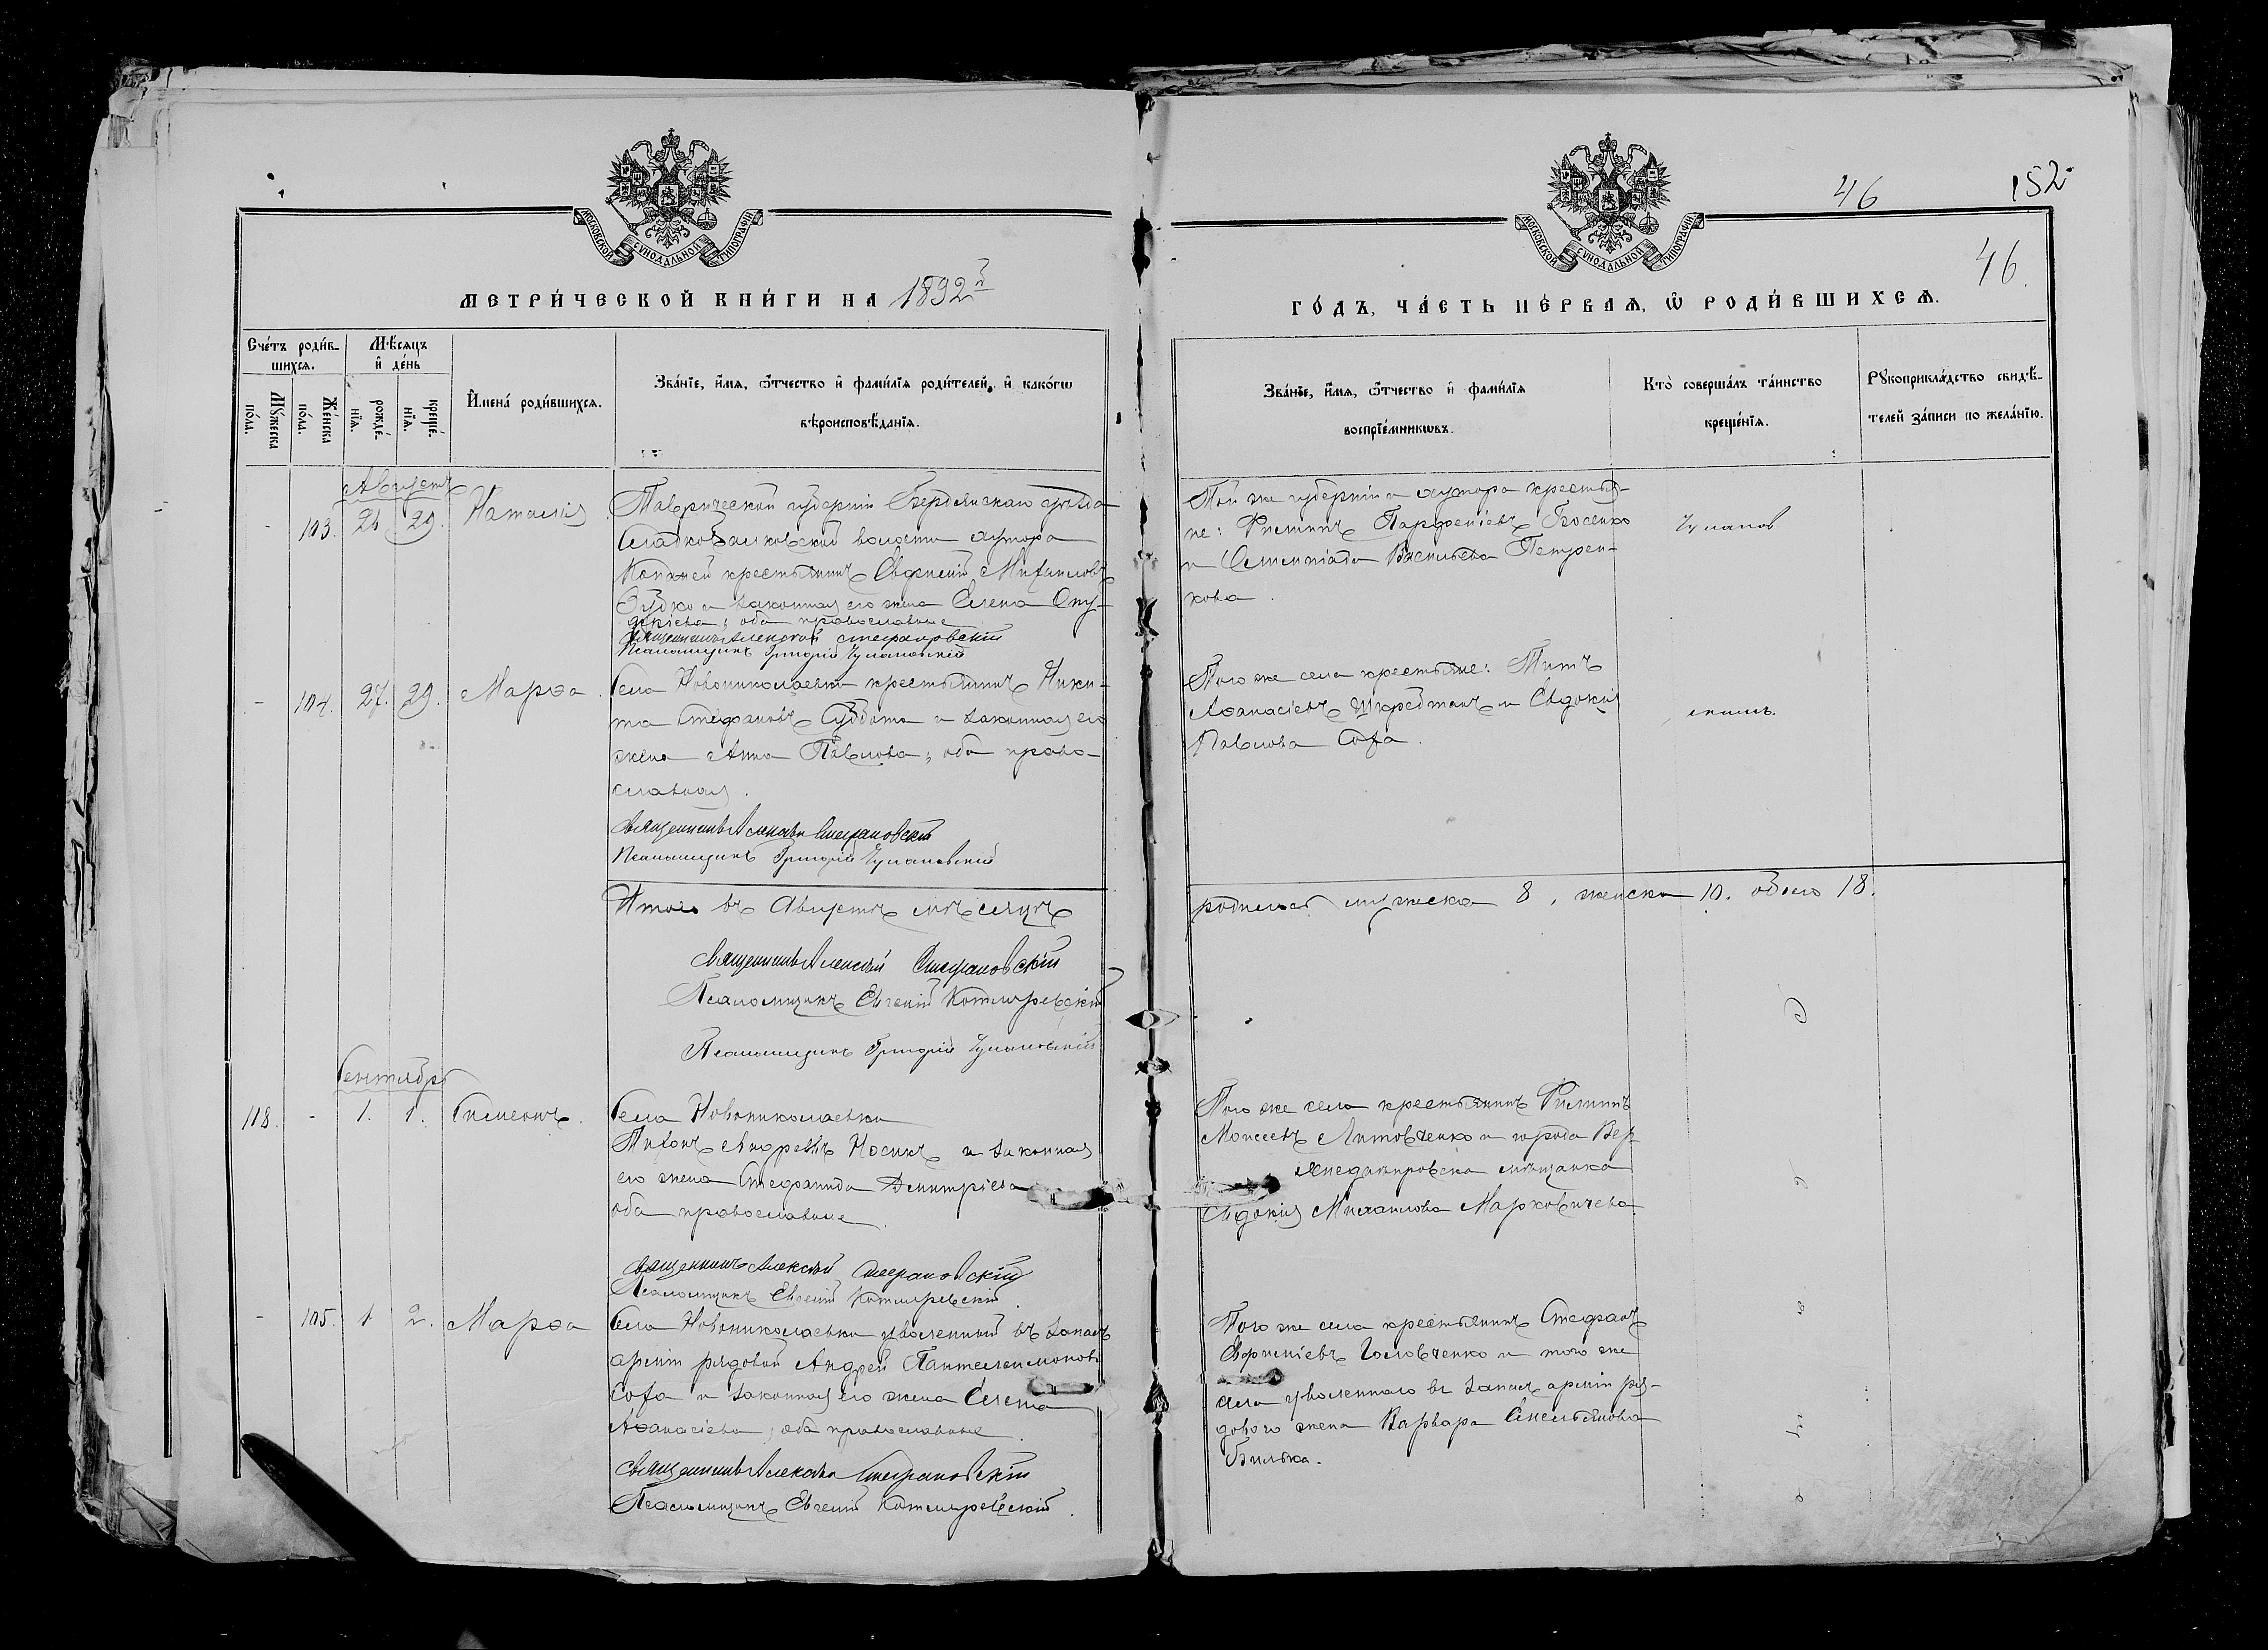 МОСКОВСКОЙ СѴНОДАЛЬНОЙ ТИПОГРАФІИ
МЕТРИ́ЧЕСКОЙ КНИ́ГИ НА 1892 й
Сче́тъ роди́в-
шихсѧ.
Мꙋ́жеска по́ла.
Же́нска по́ла.
Мѣ́сѧцъ
и҆ де́нь
рожде́-
нїѧ.
креще́-
нїѧ.
И҆мена̀ роди́вшихсѧ.
Зва́нїе, и҆́мѧ, ѻ҆́тчество и҆ фами́лїѧ роди́телей, и҆ како́гѡ
вѣроисповѣ́данїѧ.
Августъ
- 103. 26 29. Наталія
Таврической губерніи Бердянскаго уѣзда
волости хутора
крестьянинъ Евфимій Михаиловъ
и законная его жена Елена Ону-
фріева; оба православные
Священникъ Алексѣй Стефановскій
Псаломщикъ Григорій Чулановскій
- 104. 27. 29. Марѳа.
Села Новониколаевки крестьянинъ Ники-
та Стефановъ Суббота и законная его
жена Анна Павлова; оба право-
славныя.
Священникъ Алексѣй Стефановскій
Псаломщикъ Григорій Чулановскій
Итого въ Августѣ мѣсяцѣ
Священникъ Алексѣй Стефановскій
Псаломщикъ Евгеній Котляревскій
Псаломщикъ Григорій Чулановскій
Сентябрь
118. - 1. 1. Симеонъ.
Села Новониколаевки
Тихонъ Андреевъ Носикъ и законная
его жена Стефанида Димитріева
оба православные.
Священникъ Алексѣй Стефановскій
Псаломщикъ Евгеній Котляревскій
- 105. 1 2. Марѳа
Села Новониколаевки уволенный въ запасъ
арміи рядовой Андрей Пантелеимоновъ
Соха и законная его жена Елена
Аѳанасіева; оба православные.
Священникъ Алексѣй Стефановскій
Псаломщикъ Евгеній Котляревскій.
46 152
46.
МОСКОВСКОЙ СѴНОДАЛЬНОЙ ТИПОГРАФІИ
ГО́ДЪ, ЧА́СТЬ ПЕ́РВАѦ, Ѡ҆ РОДИ́ВШИХСѦ.
Зва́нїе, и҆́мѧ, ѻ҆́тчество и҆ фами́лїѧ
воспрїе́мникѡвъ.
Кто̀ соверша́лъ та́инство
креще́нїѧ.
Рꙋкоприкла́дство свидѣ́-
телей за́писи по жела́нїю.
Той же губерніи и хутора крестья-
не: Филиппъ Парфеніевъ
и Олимпіада Васильева Петрен-
кова.
Того же села крестьяне: Титъ
Аѳанасіевъ и Евдокія
Павлова Соха.
родилось мужеска 8, женска 10. обоего 18.
Того же села крестьянинъ Филиппъ
Моисеевъ Литовченко и города Вер-
хнеднѣпровска мѣщанка
Евдокія Михаилова Марковичева.
Того же села крестьянинъ Стефанъ
Евфиміевъ Головченко и того же
села уволеннаго въ запасъ арміи ря-
дового жена Варвара Емельянова